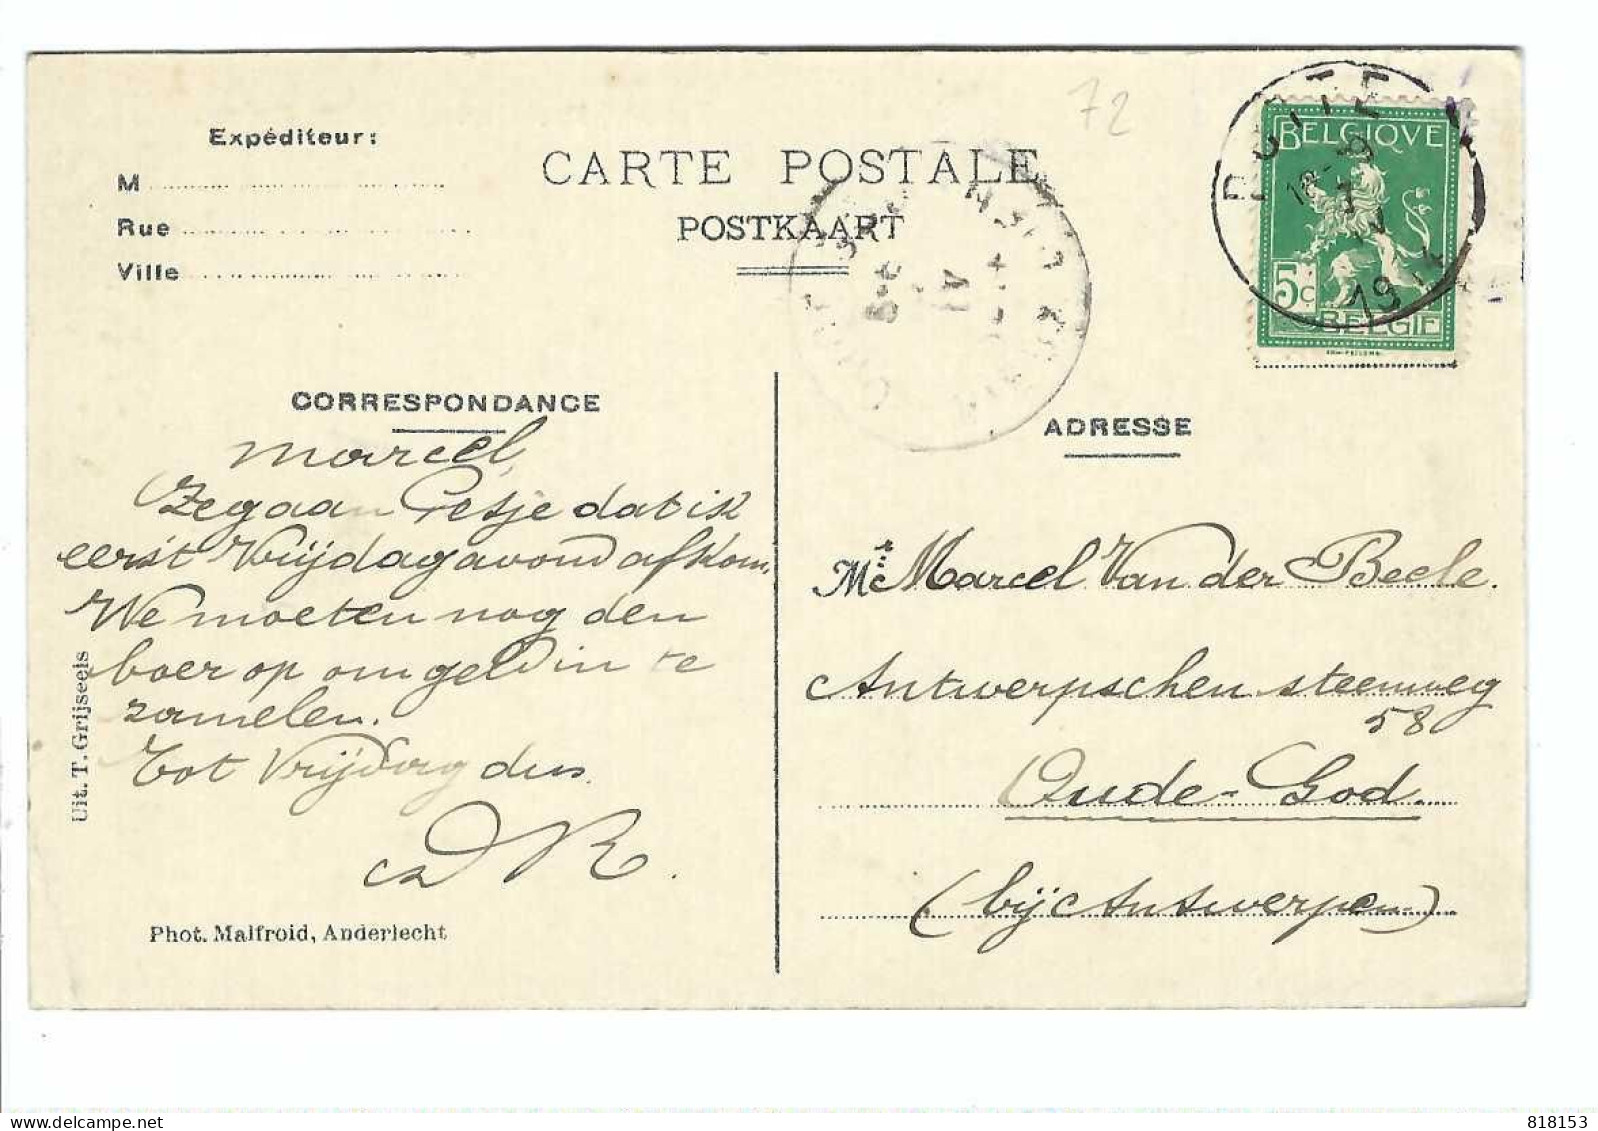 72
Expéditeur:
M
Rue
Ville
CARTE POSTALE
POSTKAART
BELGIQVE
5c
BELGIE
1914
CORRESPONDANCE
Marcel,
Zeg aan Petsje dat ik
eerst Vrijdag avond afkom.
We moeten nog den
boer op om geld in te
zamelen.
Tot Vrijdag dus.
R.
Uit. T. Grijseels
Phot. Malfroid, Anderlecht
ADRESSE
Mr Marcel Van der Beele.
Antwerpschen steenweg
58
Oude-God.
(bij Antwerpen)
818153